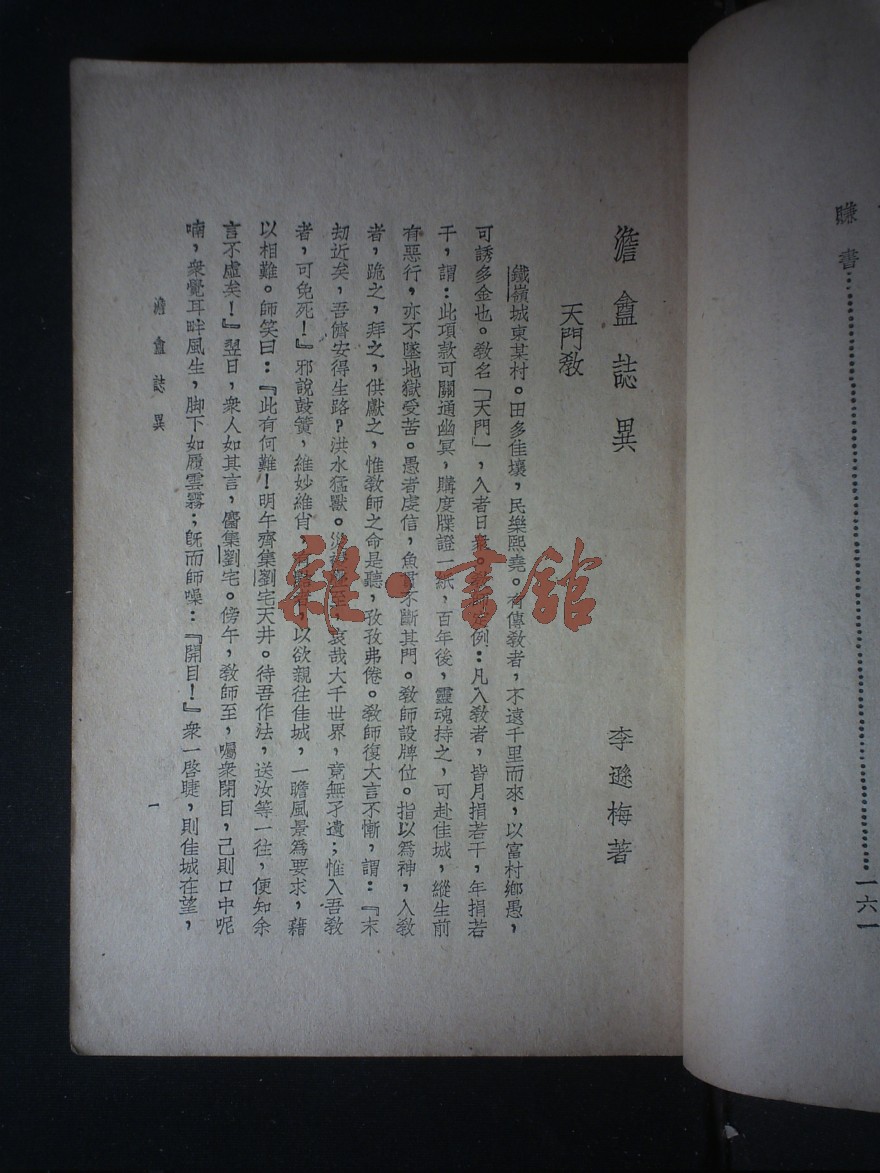 賺書……一六一
澹盦誌異
李遜梅著
天門教
鐵嶺城東某村。田多佳壤，民樂熙堯。有傳教者，不遠千里而來，以富村鄉愚，
可誘多金也。教名「天門」，入者日衆。例：凡入教者，皆月捐若干，年捐若
干，謂：此項款可關通幽冥，購度牒證一紙，百年後，靈魂持之，可赴佳城，縱生前
有惡行，亦不墜地獄受苦。愚者虔信，魚貫不斷其門。教師設牌位。指以爲神，入教
者，跪之，拜之，供獻之，惟教師之命是聽，孜孜弗倦。教師復大言不慚，謂：『末
刧近矣，吾儕安得生路？洪水猛獸。至，哀哉大千世界，竟無孑遺；惟入吾教
者，可免死！』邪說鼓簧，維妙維肖，以欲親往佳城，一瞻風景爲要求，藉
以相難。師笑曰：『此有何難！明午齊集劉宅天井。待吾作法，送汝等一往，便知余
言不虛矣！』翌日，衆人如其言，麕集劉宅。傍午，教師至，囑衆閉目，己則口中呢
喃，衆覺耳畔風生，脚下如履雲霧；旣而師噪：『開目！』衆一啓睫，則佳城在望，
澹盦誌異
一
雜·書館